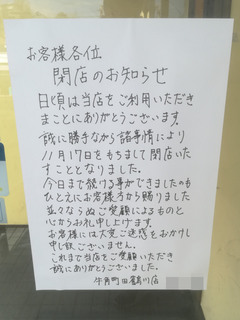 お客様各位
閉店のお知らせ
日頃は当店をご利用いただき
まことにありがとうございます。
誠に勝手ながら諸事情により
11月17日をもちまして閉店いた
すこととなりました。
今日まで続ける事ができましたのも
ひとえにお客様方から賜りました
並々ならぬご愛顧によるものと
心からお礼申し上げます。
お客様には大変ご迷惑をおかけし
申し訳ございません。
これまで当店をご愛顧いただき
誠にありがとうございました。
牛角町田鶴川店